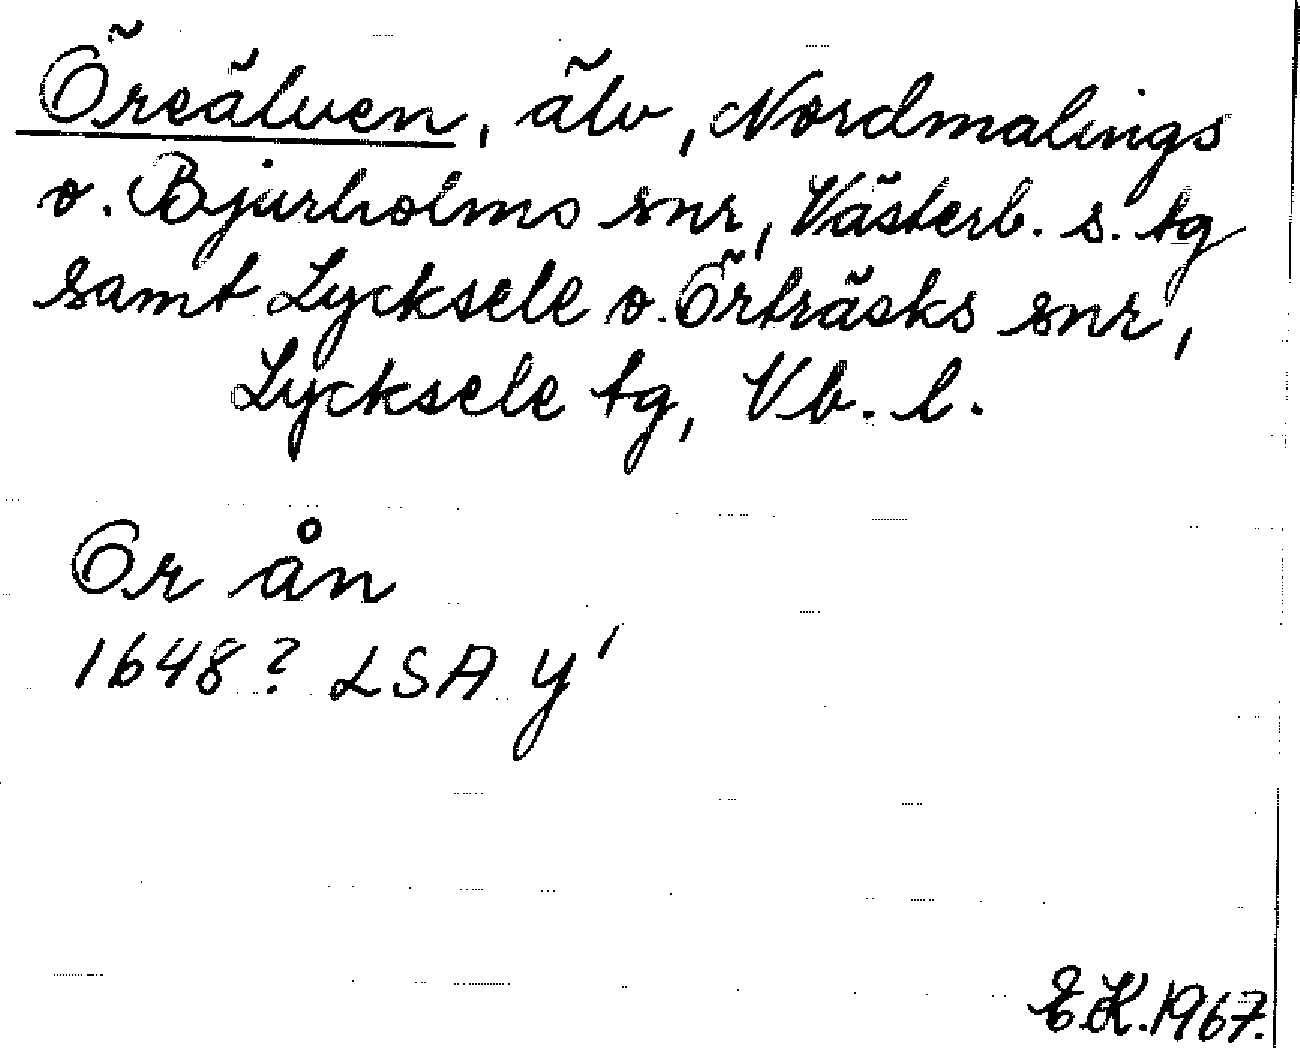 Öreälven, älv, Nordmalings
o. Bjurholms snr, Västerb. s. tg
samt Lycksele o. Örträsks snr,
Lycksele tg, Vb. l.
Or ån
1648? LSA y'
E.K. 1967.